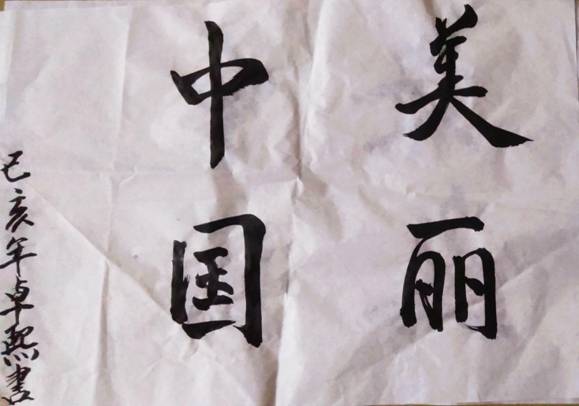 美丽
中国
己亥年卓熙書